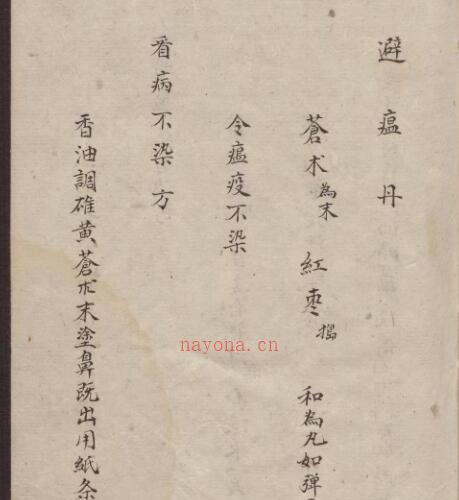 避瘟丹
蒼朮為末 紅枣搗 和為丸如彈
令瘟疫不染
看病不染方
香油調雄黄蒼朮末塗鼻既出用紙条
nayona.cn